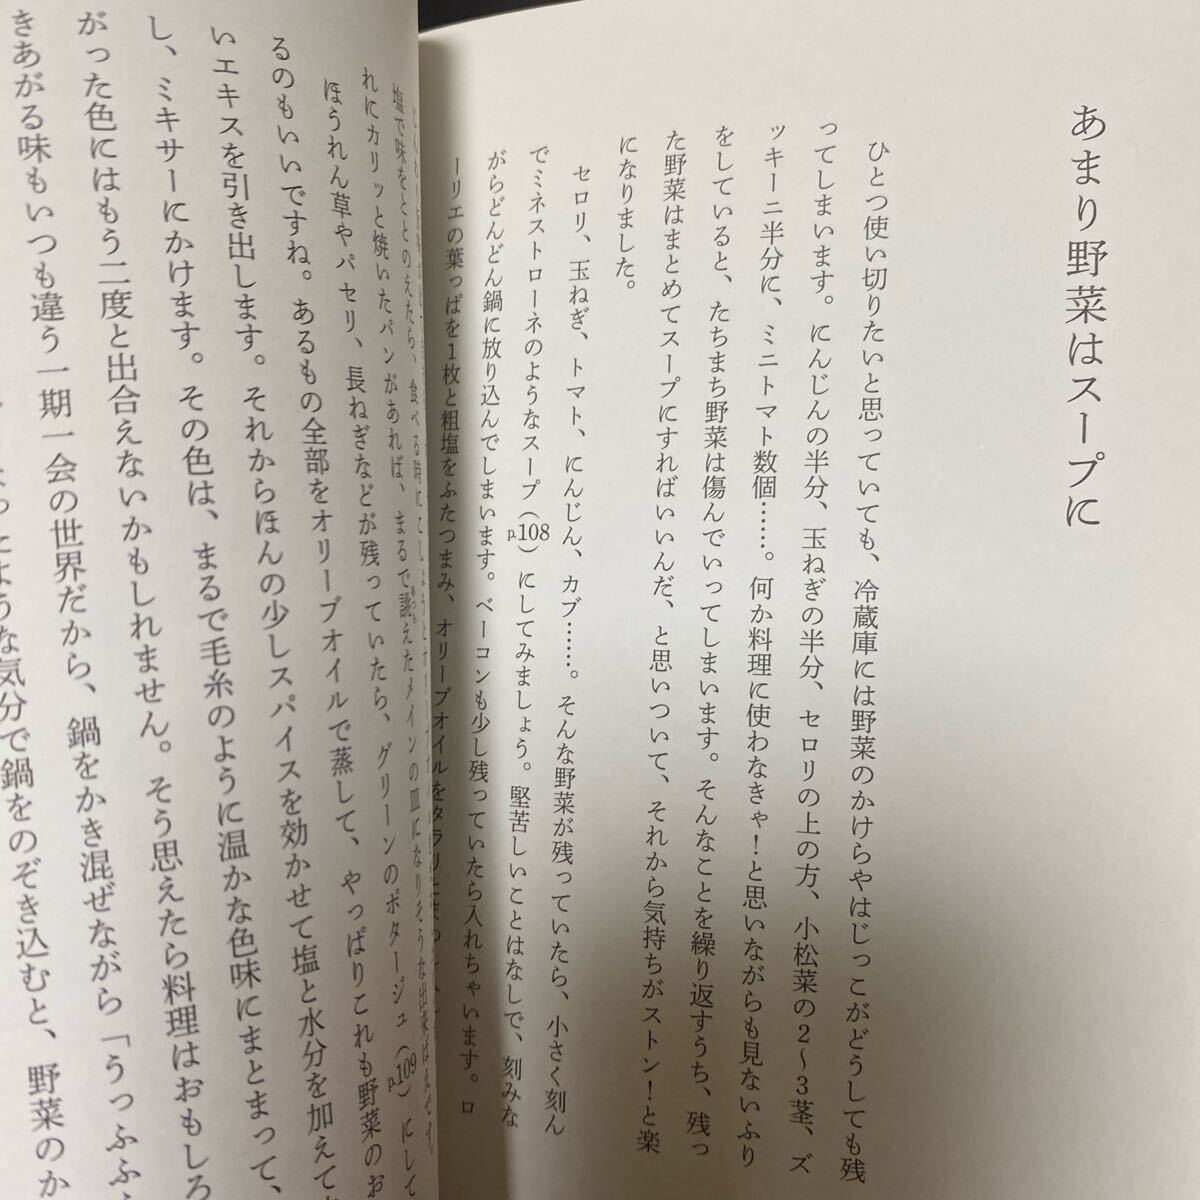 あまり野菜はスープに
ひとつ使い切りたいと思っていても、冷蔵庫には野菜のかけらやはじっこがどうしても残
ってしまいます。にんじんの半分、玉ねぎの半分、セロリの上の方、小松菜の2〜3茎、ズ
ッキーニ半分に、ミニトマト数個……。何か料理に使わなきゃ！と思いながらも見ないふり
をしていると、たちまち野菜は傷んでいってしまいます。そんなことを繰り返すうち、残っ
た野菜はまとめてスープにすればいいんだ、と思いついて、それから気持ちがストン！と楽
になりました。
セロリ、玉ねぎ、トマト、にんじん、カブ……。そんな野菜が残っていたら、小さく刻ん
でミネストローネのようなスープ（p.108）にしてみましょう。堅苦しいことはなしで、刻みな
がらどんどん鍋に放り込んでしまいます。ベーコンも少し残っていたら入れちゃいます。ロ
ーリエの葉っぱを1枚と粗塩をふたつまみ、オリーブオイルをタラリと
塩で味をととのえたら、食べる時に
れにカリッと焼いたパンがあれば、まるで誂えたメインの皿になりそうな出来ばえです。
ほうれん草やパセリ、長ねぎなどが残っていたら、グリーンのポタージュ（p.109）にして
るのもいいですね。あるもの全部をオリーブオイルで蒸して、やっぱりこれも野菜のお
いエキスを引き出します。それからほんの少しスパイスを効かせて塩と水分を加えて
し、ミキサーにかけます。その色は、まるで毛糸のように温かな色味にまとまって、
がった色にはもう二度と出合えないかもしれません。そう思えたら料理はおもしろ
きあがる味もいつも違う一期一会の世界だから、鍋をかき混ぜながら「うっふふ
ような気分で鍋をのぞき込むと、野菜のか